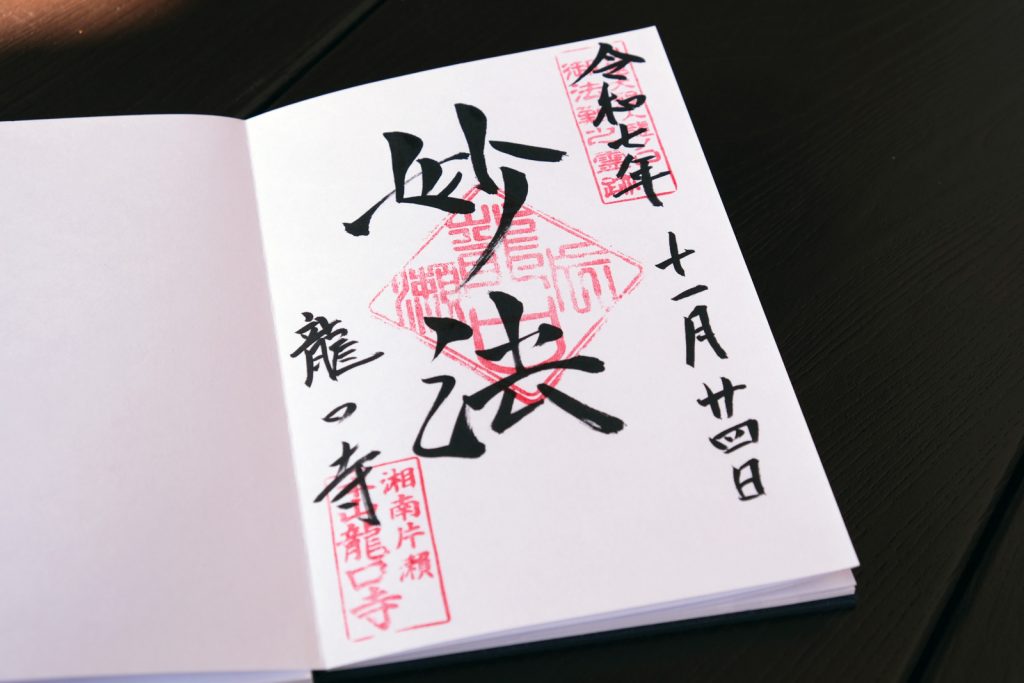 令和七年 十一月廿四日
御法難之霊跡
妙法
龍口寺
湘南片瀬
本山龍口寺